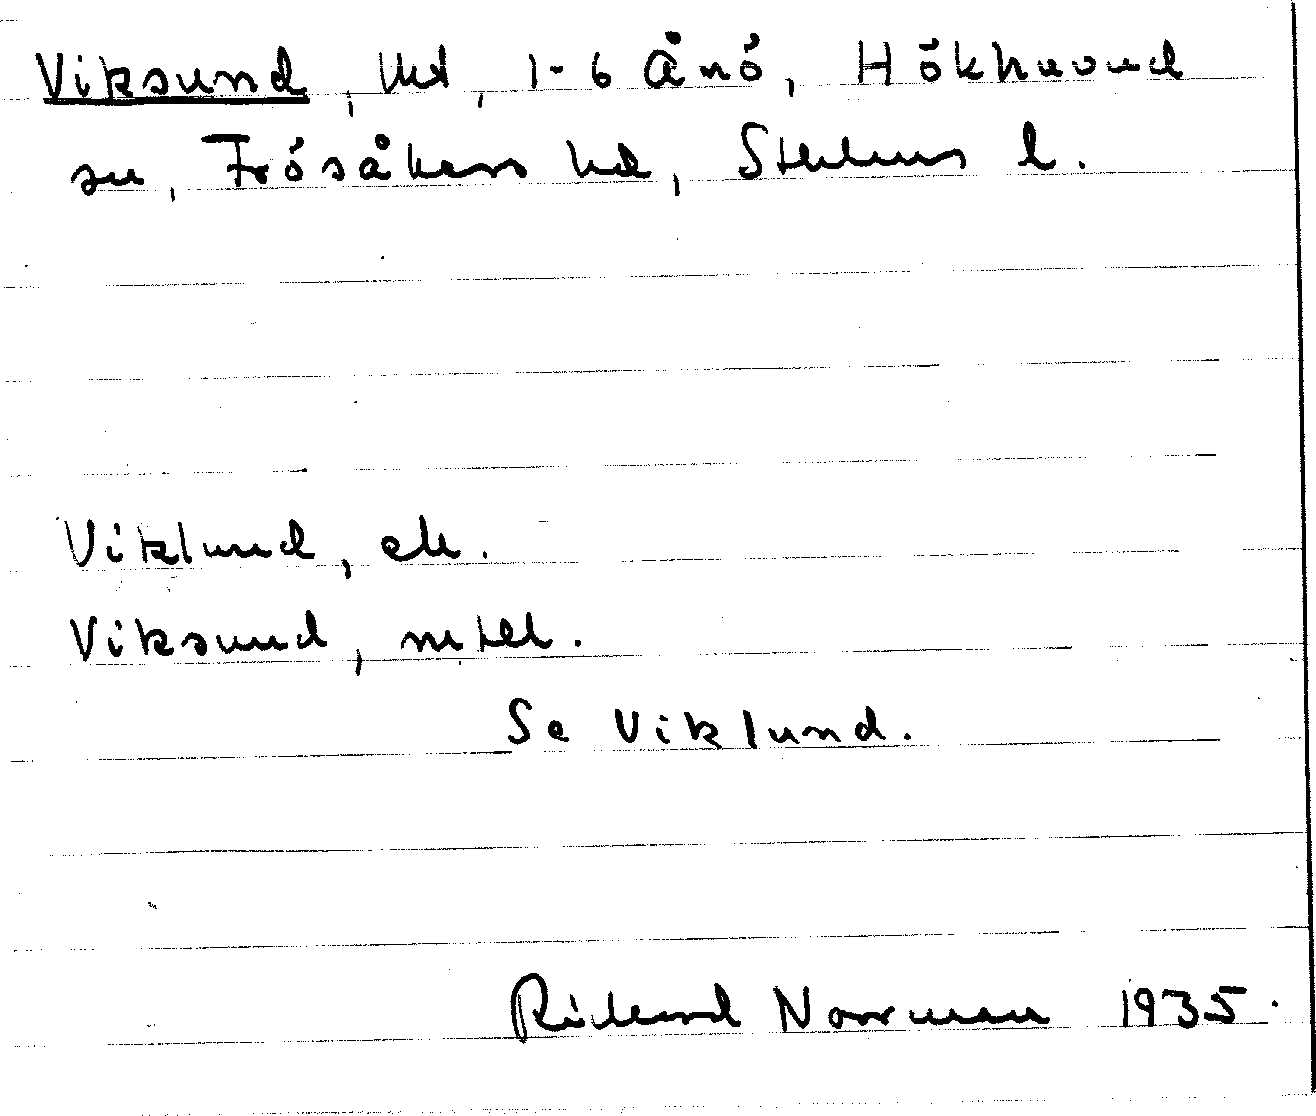 Viksund, tkt, 1-6 Ånö, Hökhuvud
sn, Frösåkers hd, Sthlms l.
Viklund, ek.
Viksund, mtll.
Se Viklund.
Rickard Norrman 1935.